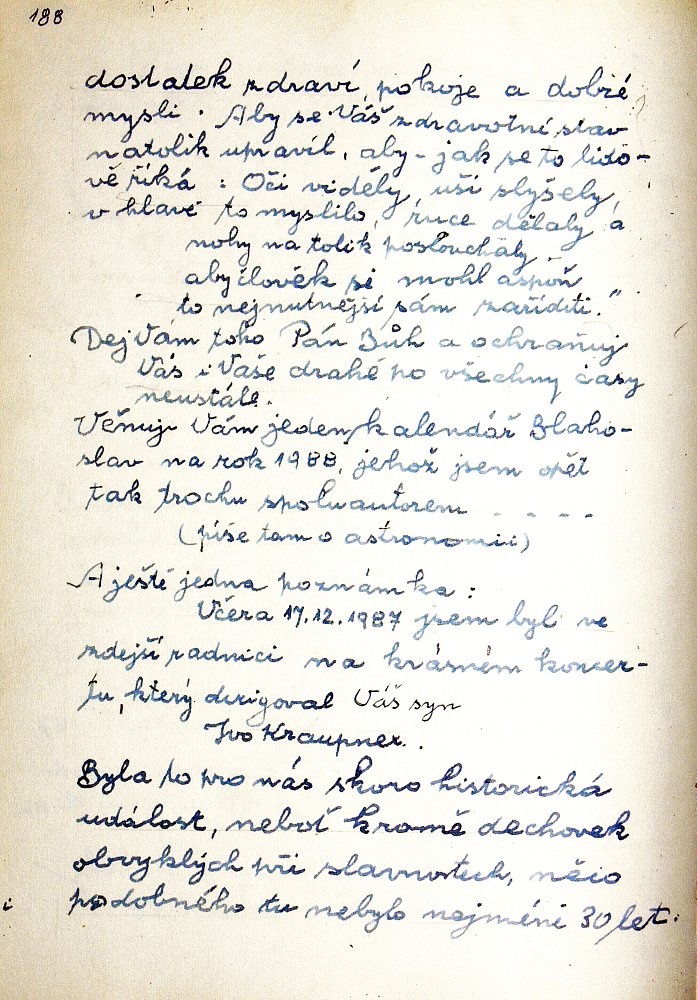 188
dostatek zdraví, pokoje a dobré
mysli. Aby se Váš zdravotní stav
natolik upravil, aby - jak se to lido-
vě říká: Oči viděly, uši slyšely,
v hlavě to myslilo, ruce dělaly a
nohy na tolik poslouchaly,
aby člověk si mohl aspoň
to nejnutnější sám zaříditi."
Dej Vám toho Pán Bůh a ochraňuj
Vás i Vaše drahé po všechny časy
neustále.
Věnuji Vám jeden kalendář Blaho-
slav na rok 1988, jehož jsem opět
tak trochu spoluautorem - - - -
(píše tam o astronomii)
A ještě jedna poznámka:
Včera 17.12.1987 jsem byl ve
zdejší radnici na krásném koncer-
tu, který dirigoval Váš syn
Ivo Kraupner.
Byla to pro nás skoro historická
událost, neboť kromě dechovek
obvyklých při slavnostech, něco
podobného tu nebylo nejméně 30 let.